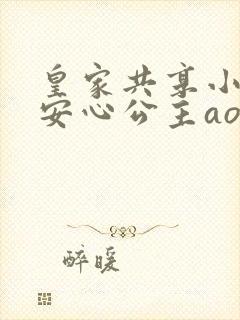 皇家共享小
安心公主ao
醉暖